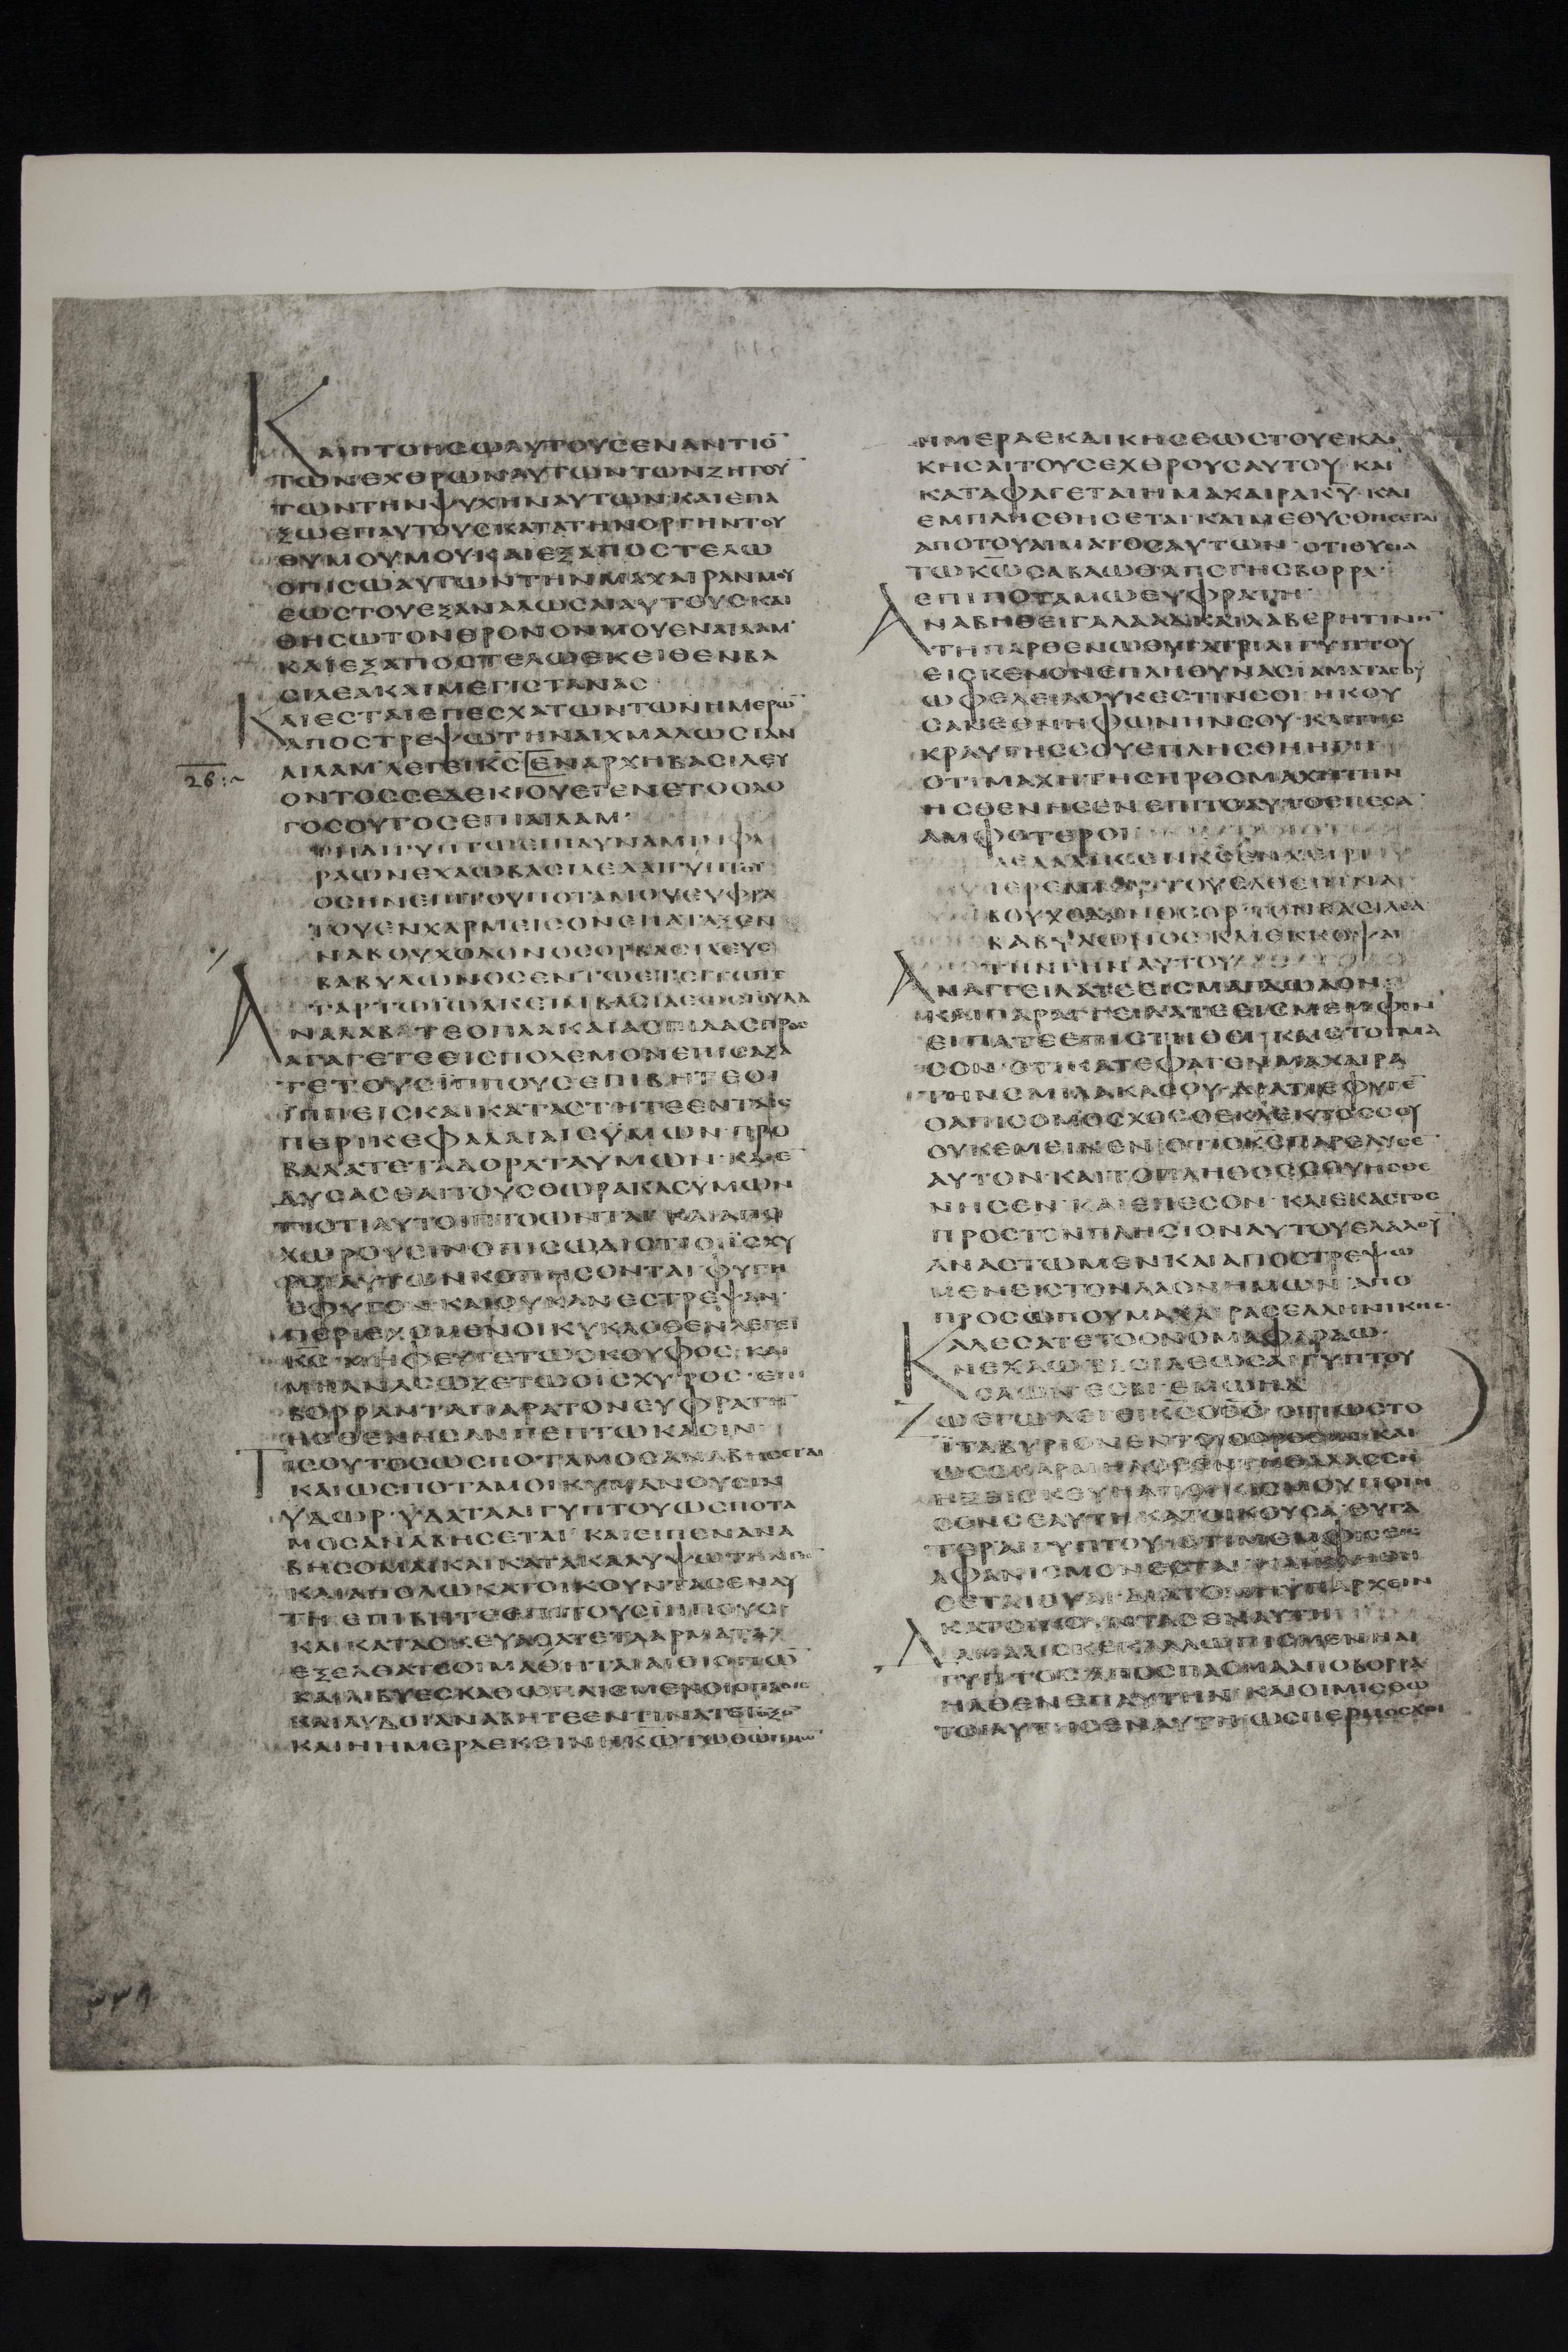 ΚΑΙΠΤΟΗСΩΑΥΤΟΥСΕΝΑΝΤΙΟ̅
ΤΩΝΕΧΘΡΩΝΑΥΤΩΝΤΩΝΖΗΤΟΥ̅
ΤΩΝΤΗΝΨΥΧΗΝΑΥΤΩΝ·ΚΑΙΕΠΑ
ΞΩΕΠΑΥΤΟΥСΚΑΤΑΤΗΝΟΡΓΗΝΤΟΥ
ΘΥΜΟΥΜΟΥΚΑΙΕΞΑΠΟСΤΕΛΩ
ΟΠΙСΩΑΥΤΩΝΤΗΝΜΑΧΑΙΡΑΝΜΟΥ
ΕΩСΤΟΥΕΞΑΝΑΛΩСΑΙΑΥΤΟΥСΚΑΙ
ΘΗСΩΤΟΝΘΡΟΝΟΝΜΟΥΕΝΑΙΛΑΜ·
ΚΑΙΕΞΑΠΟСΤΕΛΩΕΚΕΙΘΕΝΒΑ
СΙΛΕΑΚΑΙΜΕΓΙСΤΑΝΑС·
ΚΑΙΕСΤΑΙΕΠΕСΧΑΤΩΝΤΩΝΗΜΕΡΩ̅
ΑΠΟСΤΡΕΨΩΤΗΝΑΙΧΜΑΛΩСΙΑΝ
26:~ ΑΙΛΑΜ·ΛΕΓΕΙΚ̅С̅ΕΝΑΡΧΗΒΑСΙΛΕΥ
ΟΝΤΟССΕΔΕΚΙΟΥΕΓΕΝΕΤΟΟΛΟ
ΓΟСΟΥΤΟСΕΠΙΑΙΛΑΜ·
ΡΑΩΝΕΧΑΩΒΑСΙΛΕΑΑΙΓΥΠΤΟΥ
ΟСΗΝΕΠΙΤΟΥΠΟΤΑΜΟΥΕΥΦΡΑ
ΤΟΥΕΝΧΑΡΜΕΙСΟΝΕΠΑΤΑΞΕΝ
ΝΑΒΟΥΧΟΔΟΝΟСΟΡΒΑСΙΛΕΥС
ΒΑΒΥΛΩΝΟСΕΝΤΩΕΤΕΙΤΩ
ΑΝΑΛΑΒΑΤΕΟΠΛΑΚΑΙΑСΠΙΔΑСΠΡΟС
ΑΓΑΓΕΤΕΕΙСΠΟΛΕΜΟΝΕΠΙСΑΞΑ
ΤΕΤΟΥСΪΠΠΟΥСΕΠΙΒΗΤΕΟΙ
ΪΠΠΕΙСΚΑΙΚΑΤΑСΤΗΤΕΕΝΤΑΙС
ΠΕΡΙΚΕΦΑΛΑΙΑΙСΫΜΩΝ·ΠΡΟ
ΒΑΛΑΤΕΤΑΔΟΡΑΤΑΥΜΩΝ·ΚΑΙΕ̅
ΔΥСΑСΘΑΙΤΟΥСΘΩΡΑΚΑСΥΜΩΝ
ΤΙΟΤΙΑΥΤΟΙΠΤΟΩΝΤΑΙ·ΚΑΙΑΠΟ
ΧΩΡΟΥСΙΝΟΠΙСΩΔΙΟΤΙΟΙΪСΧΥ
ΡΟΙΑΥΤΩΝΚΟΠΗСΟΝΤΑΙ·ΦΥΓΗ
ΕΦΥΓΟΝ·ΚΑΙΟΥΚΑΝΕСΤΡΕΨΑΝ·
ΠΕΡΙΕΧΟΜΕΝΟΙΚΥΚΛΟΘΕΝΛΕΓΕΙ
Κ̅С̅·ΜΗΦΕΥΓΕΤΩΟΚΟΥΦΟС·ΚΑΙ
ΜΗΑΝΑСΩΖΕΤΩΟΙСΧΥΡΟС·ΕΠΙ
ΒΟΡΡΑΝΤΑΠΑΡΑΤΟΝΕΥΦΡΑΤΗ̅
ΗСΘΕΝΗСΑΝΠΕΠΤΩΚΑСΙΝ·
ΤΙСΟΥΤΟСΩСΠΟΤΑΜΟСΑΝΑΒΗСΕΤΑΙ
ΚΑΙΩСΠΟΤΑΜΟΙΚΥΜΑΝΟΥСΙΝ
ΥΔΩΡ·ΥΔΑΤΑΑΙΓΥΠΤΟΥΩСΠΟΤΑ
ΜΟСΑΝΑΒΗСΕΤΑΙ·ΚΑΙΕΙΠΕΝΑΝΑ
ΒΗСΟΜΑΙΚΑΙΚΑΤΑΚΑΛΥΨΩΤΗΝΓΗ̅
ΚΑΙΑΠΟΛΩΚΑΤΟΙΚΟΥΝΤΑСΕΝΑΥ
ΤΗ·ΕΠΙΒΗΤΕΕΠΙΤΟΥСΪΠΠΟΥС·
ΚΑΙΚΑΤΑСΚΕΥΑСΑΤΕΤΑΑΡΜΑΤΑ·
ΕΞΕΛΘΑΤΕΟΙΜΑΧΗΤΑΙΑΙΘΙΟΠΩ̅
ΚΑΙΛΙΒΥΕСΚΑΘΩΠΛΙСΜΕΝΟΙΟΠΛΟΙС
ΚΑΙΛΥΔΟΙΑΝΑΒΗΤΕΕΝΤΙΝΑΤΕΤΟΞΟ̅
ΚΑΙΗΗΜΕΡΑΕΚΕΙΝΗΚ̅Ω̅ΤΩΘ̅Ω̅ΗΜΩ̅
ΗΜΕΡΑΕΚΔΙΚΗСΕΩСΤΟΥΕΚΔΙ
ΚΗСΑΙΤΟΥСΕΧΘΡΟΥСΑΥΤΟΥ·ΚΑΙ
ΚΑΤΑΦΑΓΕΤΑΙΗΜΑΧΑΙΡΑΚ̅Υ̅·ΚΑΙ
ΕΜΠΛΗСΘΗСΕΤΑΙΚΑΙΜΕΘΥСΘΗСΕΤΑΙ
ΑΠΟΤΟΥΑΙΜΑΤΟСΑΥΤΩΝ·ΟΤΙΘΥСΙΑ
ΤΩΚ̅Ω̅СΑΒΑΩΘΑΠΟΓΗСΒΟΡΡΑ·
ΕΠΙΠΟΤΑΜΩΕΥΦΡΑΤΗ·
ΑΝΑΒΗΘΕΙΓΑΛΑΑΔΚΑΙΛΑΒΕΡΗΤΙΝΗ̅
ΤΗΠΑΡΘΕΝΩΘΥΓΑΤΡΙΑΙΓΥΠΤΟΥ
ΕΙСΚΕΝΟΝΕΠΛΗΘΥΝΑСΙΑΜΑΤΑСΟΥ
ΩΦΕΛΕΙΑΟΥΚΕСΤΙΝСΟΙ·ΗΚΟΥ
СΑΝΕΘΝΗΦΩΝΗΝСΟΥ·ΚΑΙΤΗС
ΚΡΑΥΓΗССΟΥΕΠΛΗСΘΗΗΓΗ·
ΟΤΙΜΑΧΗΤΗСΠΡΟСΜΑΧΗΤΗΝ
ΗСΘΕΝΗСΕΝΕΠΙΤΟΑΥΤΟΕΠΕСΑ̅
ΑΜΦΟΤΕΡΟΙ
ΕΛΑΛΗСΕΝΚ̅С̅ΕΝΧΕΙΡΙ
ΙΕΡΕΜΙΟΥΤΟΥΕΛΘΕΙΝΝΑ
ΒΟΥΧΟΔΟΝΟСΟΡ·ΤΟΝΒΑСΙΛΕΑ
ΒΑΒΥΛΩΝΟС·ΚΑΙΕΚΚΟΨΑΙ
ΤΗΝΓΗΝΑΥΤΟΥ
ΑΝΑΓΓΕΙΛΑΤΕΕΙСΜΑΓΔΩΛΟΝ·
ΚΑΙΠΑΡΑΓΓΕΙΛΑΤΕΕΙСΜΕΜΦΙΝ
ΕΙΠΑΤΕΕΠΙСΤΗΘΕΙ·ΚΑΙΕΤΟΙΜΑ
СΟΝ·ΟΤΙΚΑΤΕΦΑΓΕΝΜΑΧΑΙΡΑ
ΤΗΝСΜΙΛΑΚΑСΟΥ·ΔΙΑΤΙΕΦΥΓΕ̅
ΟΑΠΙСΟΜΟСΧΟСΟΕΚΛΕΚΤΟССΟΥ
ΟΥΚΕΜΕΙΝΕΝ·ΟΤΙΟΚ̅С̅ΠΑΡΕΛΥСΕ̅
ΑΥΤΟΝ·ΚΑΙΤΟΠΛΗΘΟССΟΥΗСΘΕ
ΝΗСΕΝ·ΚΑΙΕΠΕСΟΝ·ΚΑΙΕΚΑСΤΟС
ΠΡΟСΤΟΝΠΛΗСΙΟΝΑΥΤΟΥΕΛΑΛΟΥ̅
ΑΝΑСΤΩΜΕΝΚΑΙΑΠΟСΤΡΕΨΩ
ΜΕΝΕΙСΤΟΝΛΑΟΝΗΜΩΝ·ΑΠΟ
ΠΡΟСΩΠΟΥΜΑΧΑΙΡΑСΕΛΛΗΝΙΚΗС·
ΚΑΛΕСΑΤΕΤΟΟΝΟΜΑΦΑΡΑΩ·
ΝΕΧΑΩΒΑСΙΛΕΩСΑΙΓΥΠΤΟΥ
СΑΩΝΕСΒΙΕΜΩΗΔ
ΖΩΕΓΩΛΕΓΕΙΚ̅С̅ΟΘ̅С̅·ΟΤΙΩСΤΟ
ΪΤΑΒΥΡΙΟΝΕΝΤΟΙСΟΡΕСΙΝ·ΚΑΙ
ΩСΟΚΑΡΜΗΛΟСΕΝΤΗΘΑΛΑССΗ
СΟΝСΕΑΥΤΗΚΑΤΟΙΚΟΥСΑ·ΘΥΓΑ
ΤΕΡΑΙΓΥΠΤΟΥ·ΟΤΙΜΕΜΦΙСΕΙС
ΑΦΑΝΙСΜΟΝΕСΤΑΙ·
ΚΑΤΟΙΚΟΥΝΤΑСΕΝΑΥΤΗ
ΔΑΜΑΛΙСΚΕΚΑΛΛΩΠΙСΜΕΝΗΑΙ
ΓΥΠΤΟС·ΑΠΟСΠΑСΜΑΑΠΟΒΟΡΡΑ
ΗΛΘΕΝΕΠΑΥΤΗΝ·ΚΑΙΟΙΜΙСΘΩ
ΤΟΙΑΥΤΗСΕΝΑΥΤΗΩСΠΕΡΜΟСΧΟΙ